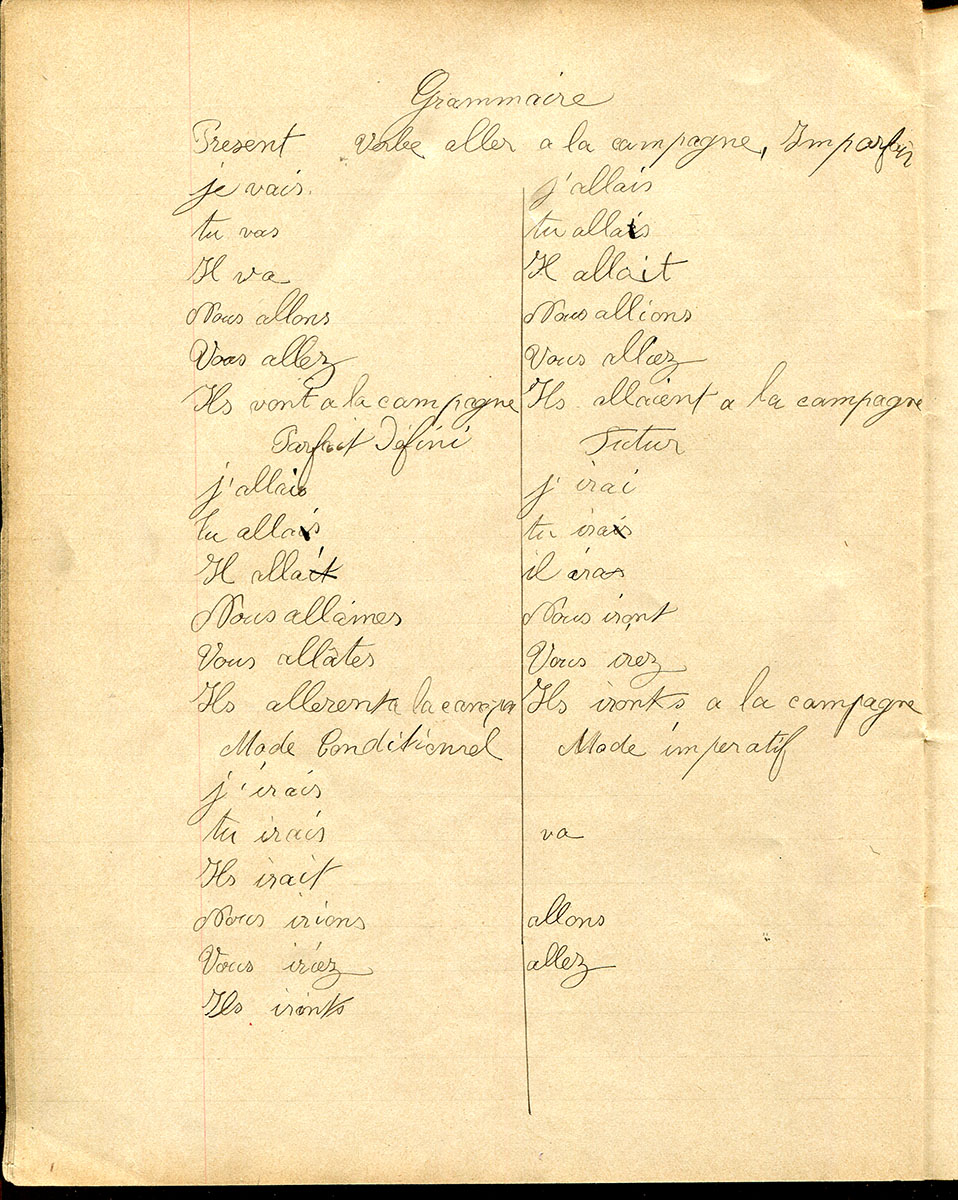 Grammaire
Present Verbe aller a la campagne, Imparfait
je vais
tu vas
Il va
Nous allons
Vous allez
Ils vont a la campagne
Parfait Défini
j'allais
tu allais
Il allait
Nous allâmes
Vous allâtes
Ils allerent a la campa
Mode Conditionnel
j'irais
tu irais
Ils irait
Nous irions
Vous iriez
Ils ironts
j'allais
tu allais
Il allait
Nous allions
Vous alliez
Ils allaient a la campagne
Futur
j'irai
tu irais
il iras
Nous iront
Vous irez
Ils ironts a la campagne
Mode imperatif
va
allons
allez